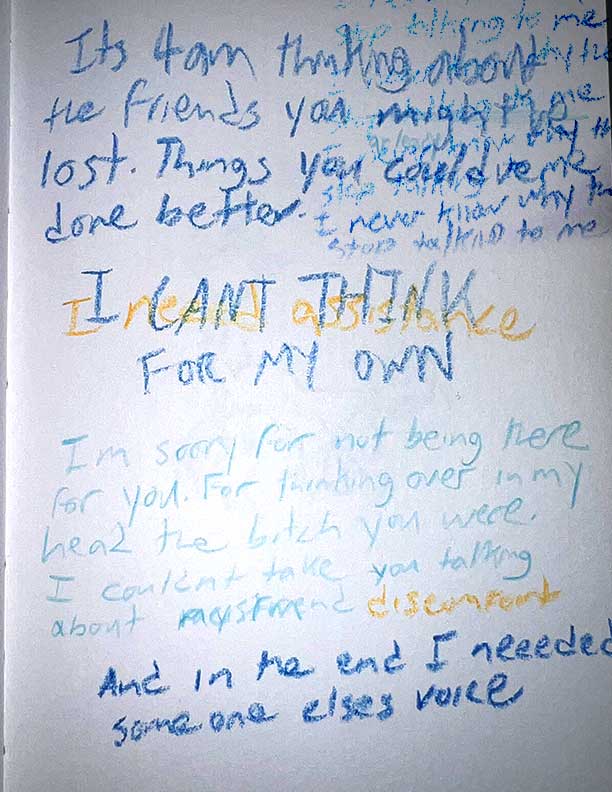 stop talking to me
Its 4am thinking about
the friends you might
lost. Things you couldve
done better.
stop talking
I never know why
stopp talking to me
I CANT THINK
I need assistance
FOR MY OWN
Im sorry for not being there
for you. For thinking over in my
head the bitch you were.
I couldnt take you talking
about discomfort
And in the end I neeeded
someone elses voice